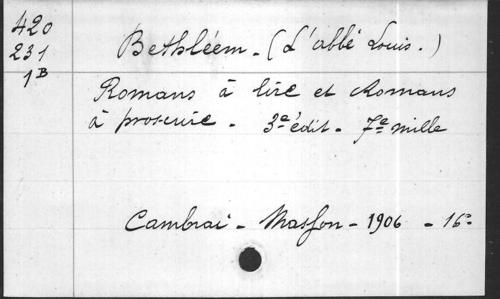 420
231
1B
Bethléem - (L'abbé Louis.)
Romans à lire et Romans
à proscrire - 3e édit - 7e mille
Cambrai - Masson - 1906 - 16°